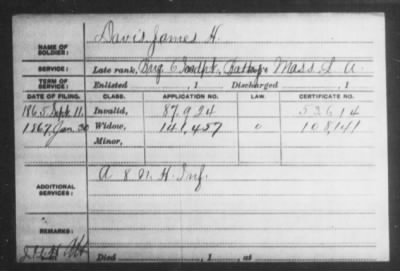 NAME OF SOLDIER: Davis James H.
SERVICE: Late rank, Battery Mass L. A.
TERM OF SERVICE: Enlisted , 1 Discharged , 1
DATE OF FILING. CLASS. APPLICATION NO. LAW. CERTIFICATE NO.
1865 Sept. 11. Invalid, 87.924 53614
1867 Jan. 30 Widow, 141,457 0 108,141
Minor,
ADDITIONAL SERVICES: A 8 N. H. Inf.
REMARKS:
Died , 1 , at